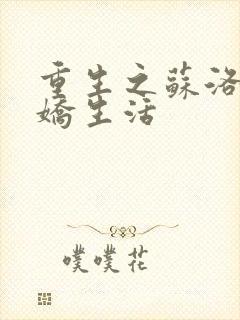 重生之蘇洛
嬌生活
噗噗花